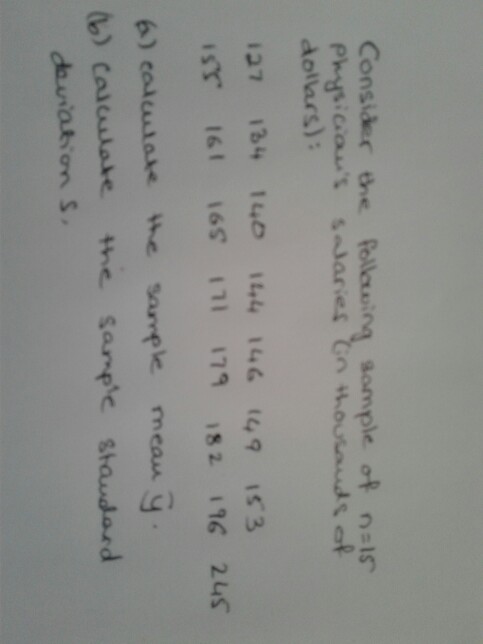 Consider the following sample of n=15
physician's salaries (in thousands of
dollars):
127 134 140 144 146 149 153
155 161 165 171 179 182 196 245
(a) calculate the sample mean ȳ.
(b) calculate the sample standard
deviation s.